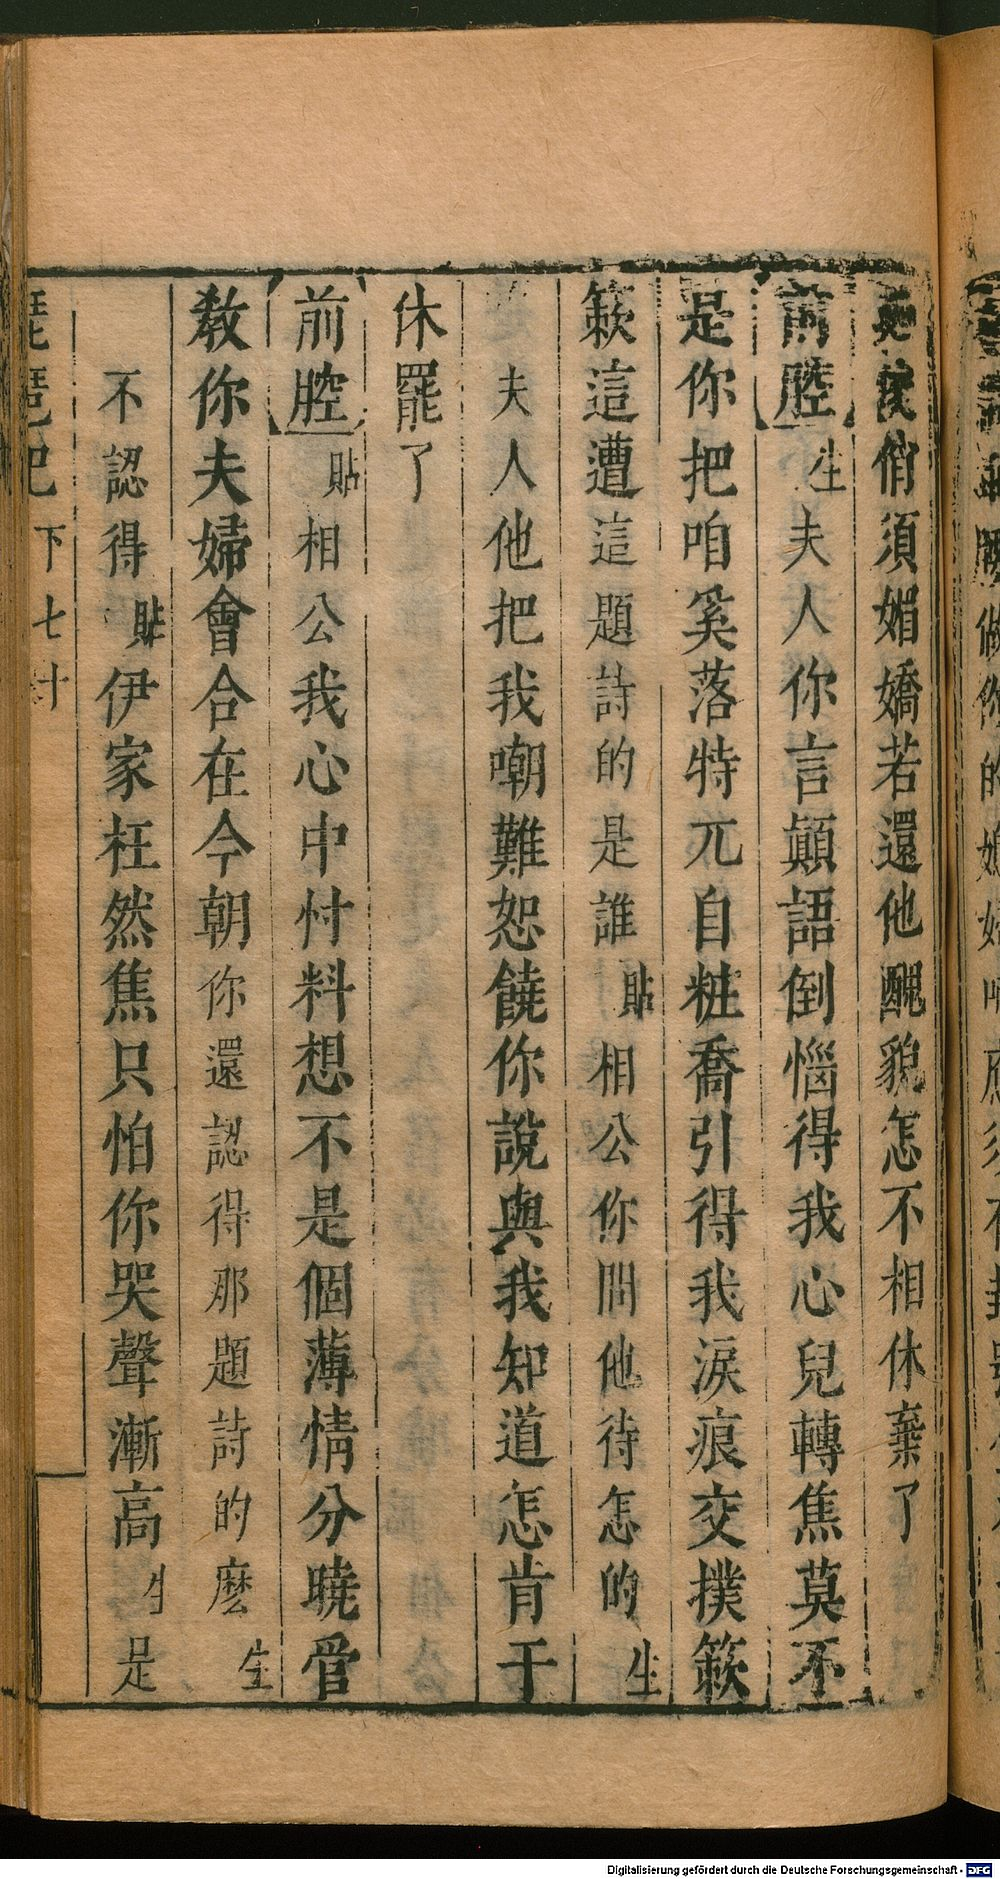 俏須媚嬌若還他醜貌怎不相休棄了
前腔生夫人你言顛語倒惱得我心兒轉焦莫不
是你把咱奚落特兀自粧喬引得我淚痕交撲簌
簌這遭這題詩的是誰貼相公你問他待怎的生
夫人他把我嘲難恕饒你說與我知道怎肯干
休罷了
前腔貼相公我心中忖料想不是個薄情分曉管
教你夫婦會合在今朝你還認得那題詩的麽生
不認得貼伊家枉然焦只怕你哭聲漸高生是
琵琶記下七十
Digitalisierung gefördert durch die Deutsche Forschungsgemeinschaft - DFG